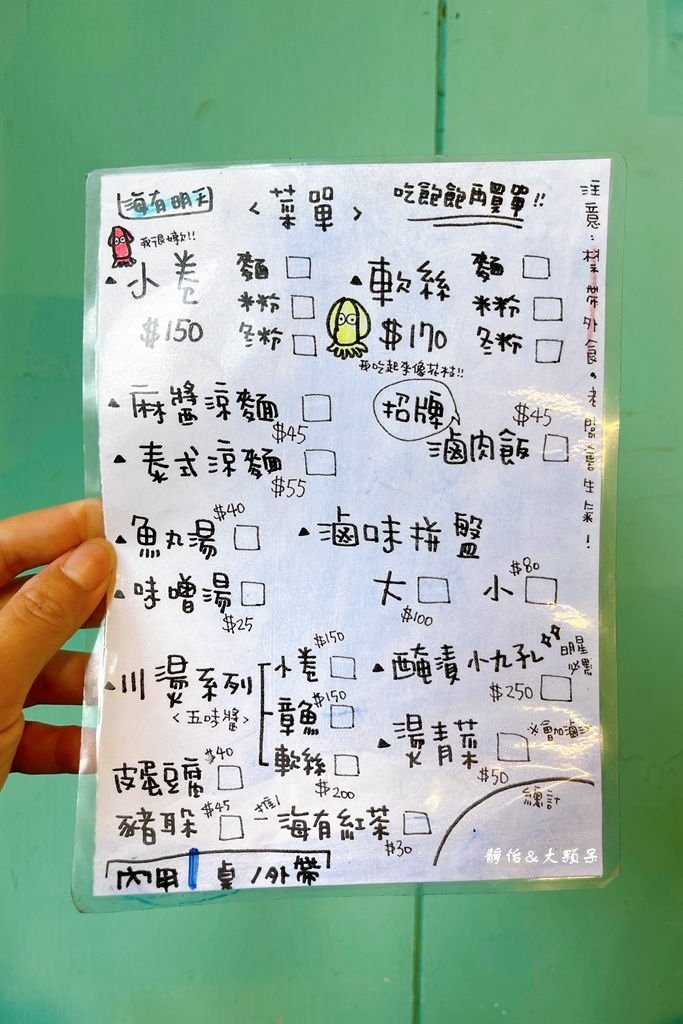 海有明天
<菜單>
吃飽飽再買單!!
我很嫩!!
小卷
$150
麵
米粉
冬粉
軟絲
$170
麵
米粉
冬粉
我吃起來像花枝!!
麻醬涼麵
$45
泰式涼麵
$55
招牌
滷肉飯
$45
魚丸湯
$40
味噌湯
$25
滷味拼盤
大
$100
小
$80
川燙系列
<五味醬>
小卷
$150
章魚
$150
軟絲
$200
醃漬小九孔
$250
明星
必點
燙青菜
$50
皮蛋豆腐
$40
豬耳朵
$45
海有紅茶
$30
總計
內用 桌/外帶
注意:禁帶外食。老闆會生氣!
靜怡&大顆呆